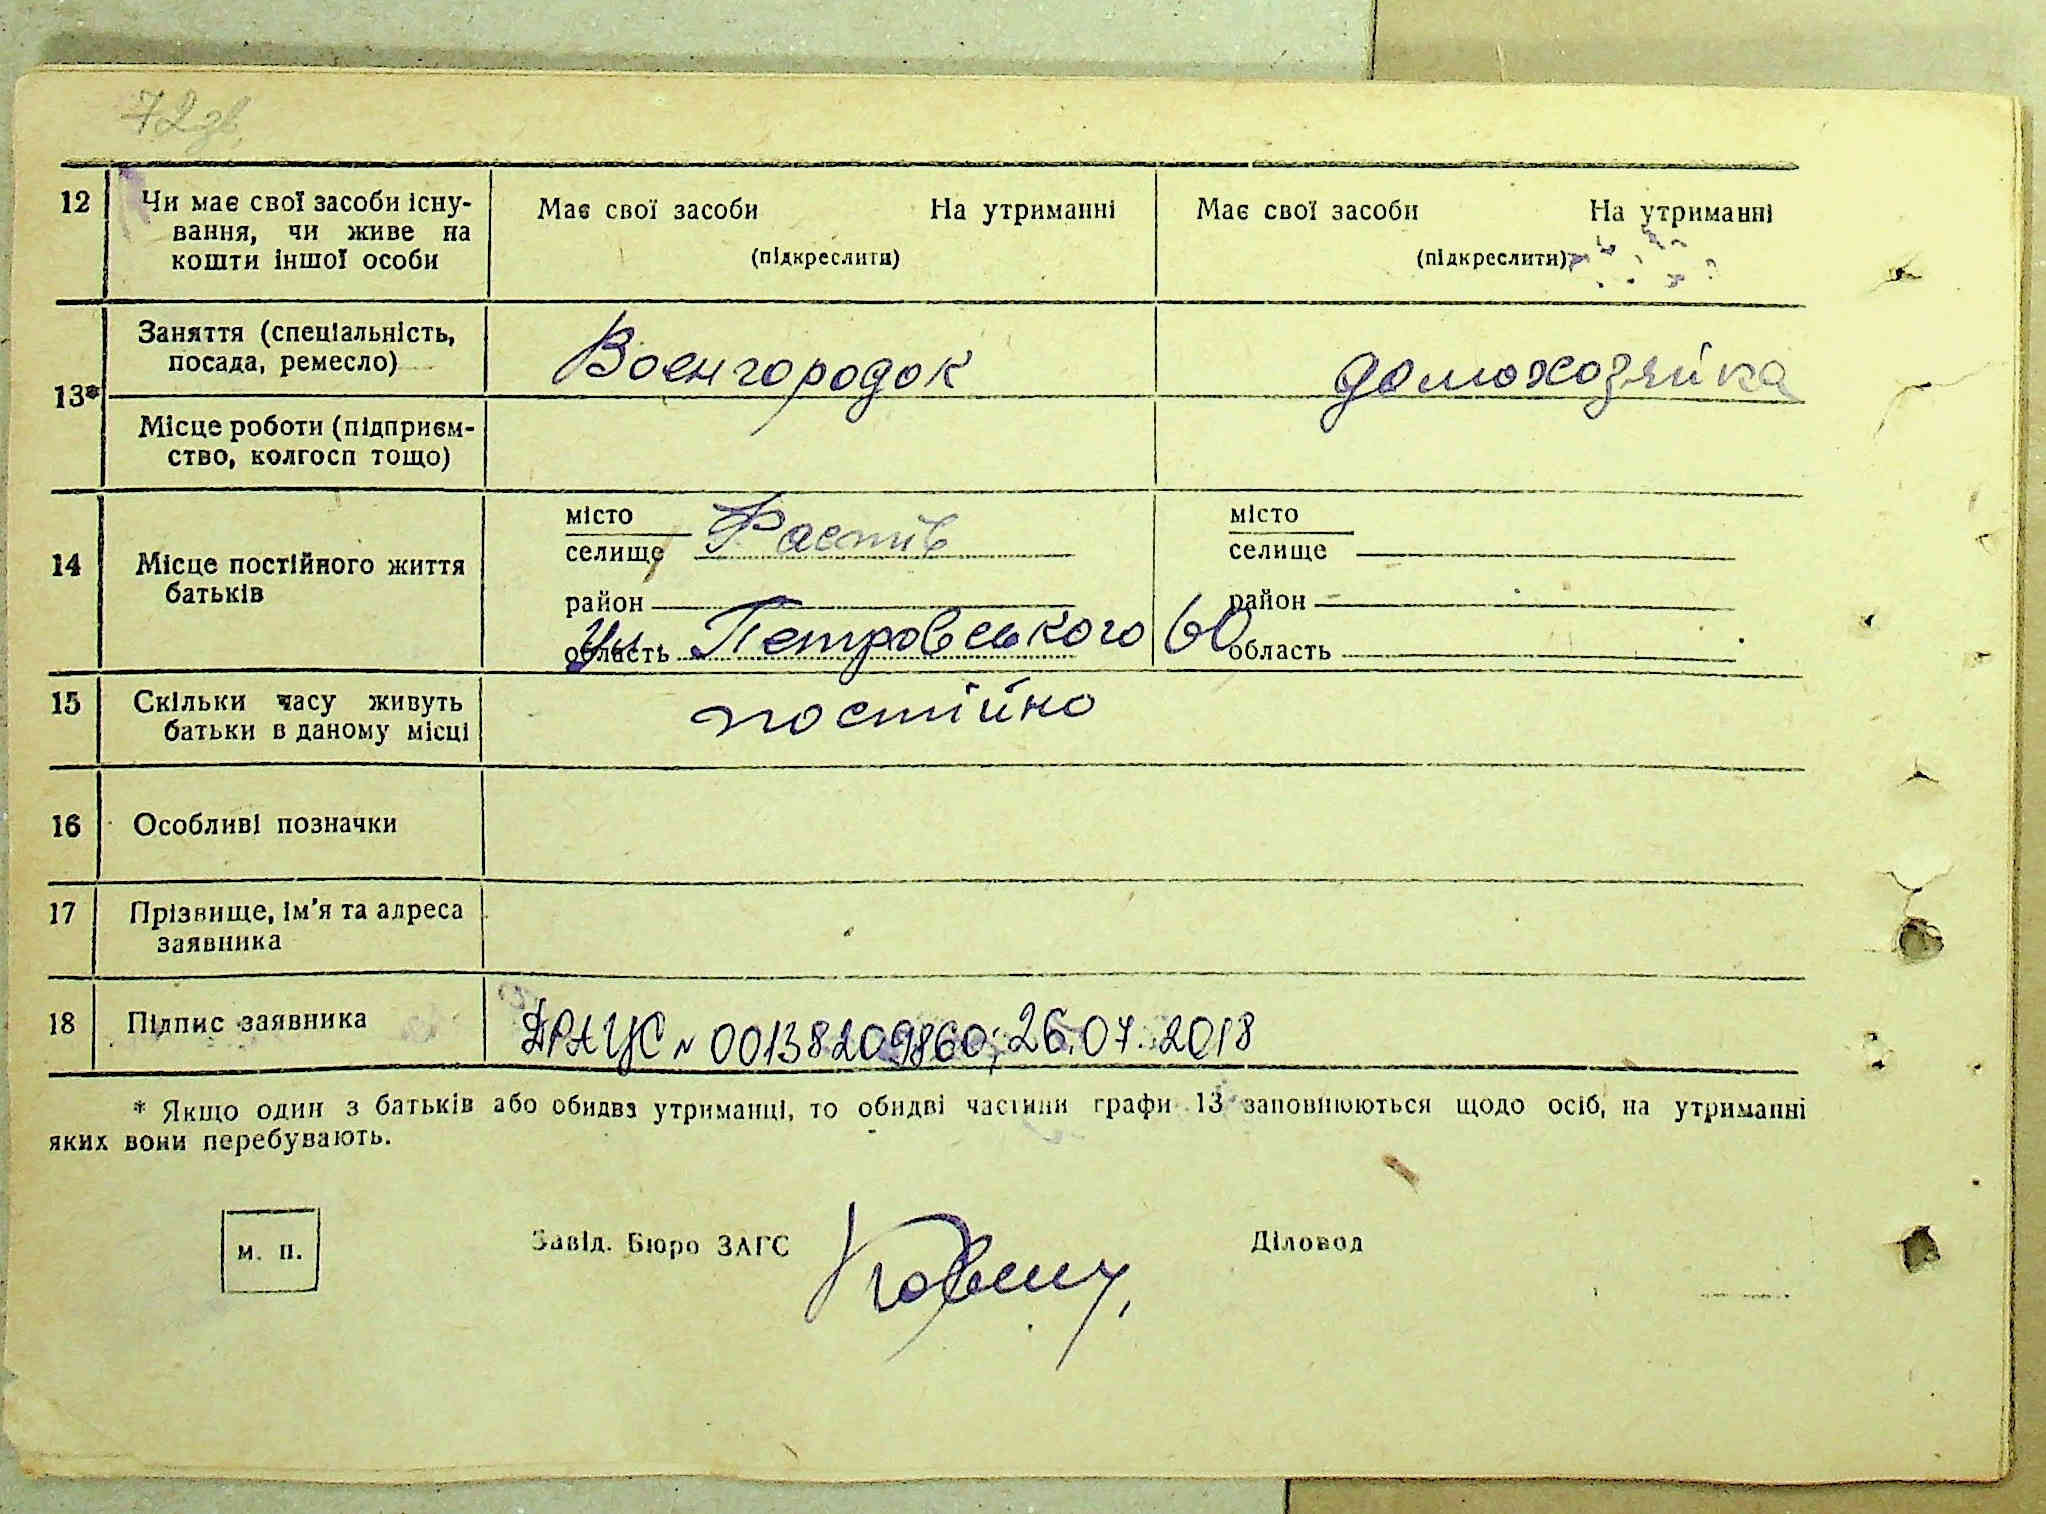 72зв.
12 Чи має свої засоби існу-
вання, чи живе на
кошти іншої особи
Має свої засоби На утриманні
(підкреслити)
Має свої засоби На утриманні
(підкреслити)
13*
Заняття (спеціальність,
посада, ремесло)
Военгородок
домохозяйка
Місце роботи (підприєм-
ство, колгосп тощо)
14 Місце постійного життя
батьків
місто
селище Фастів
район
область
ул. Петровського 60
місто
селище
район
область
15 Скільки часу живуть
батьки в даному місці
постійно
16 Особливі позначки
17 Прізвище, ім'я та адреса
заявника
18 Підпис заявника
ДРАЦС № 00138209860; 26.07.2018
* Якщо один з батьків або обидва утриманці, то обидві частини графи 13 заповнюються щодо осіб, на утриманні
яких вони перебувають.
м. п.
Завід. Бюро ЗАГС
Діловод